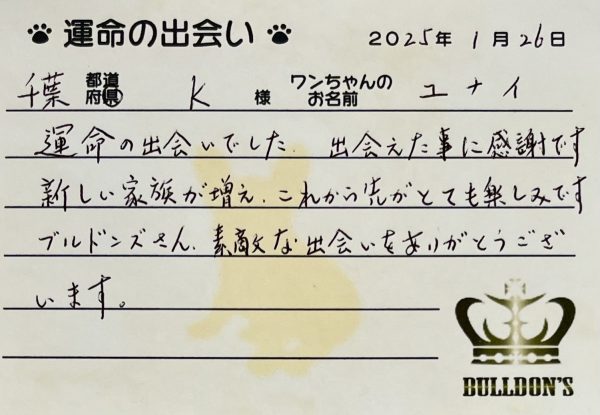 運命の出会い 2025年1月26日
千葉 都道府県 K 様 ワンちゃんのお名前 ユナイ
運命の出会いでした、出会えた事に感謝です
新しい家族が増え、これから先がとても楽しみです
ブルドンズさん、素敵な出会いをありがとうござ
います。
BULLDON'S